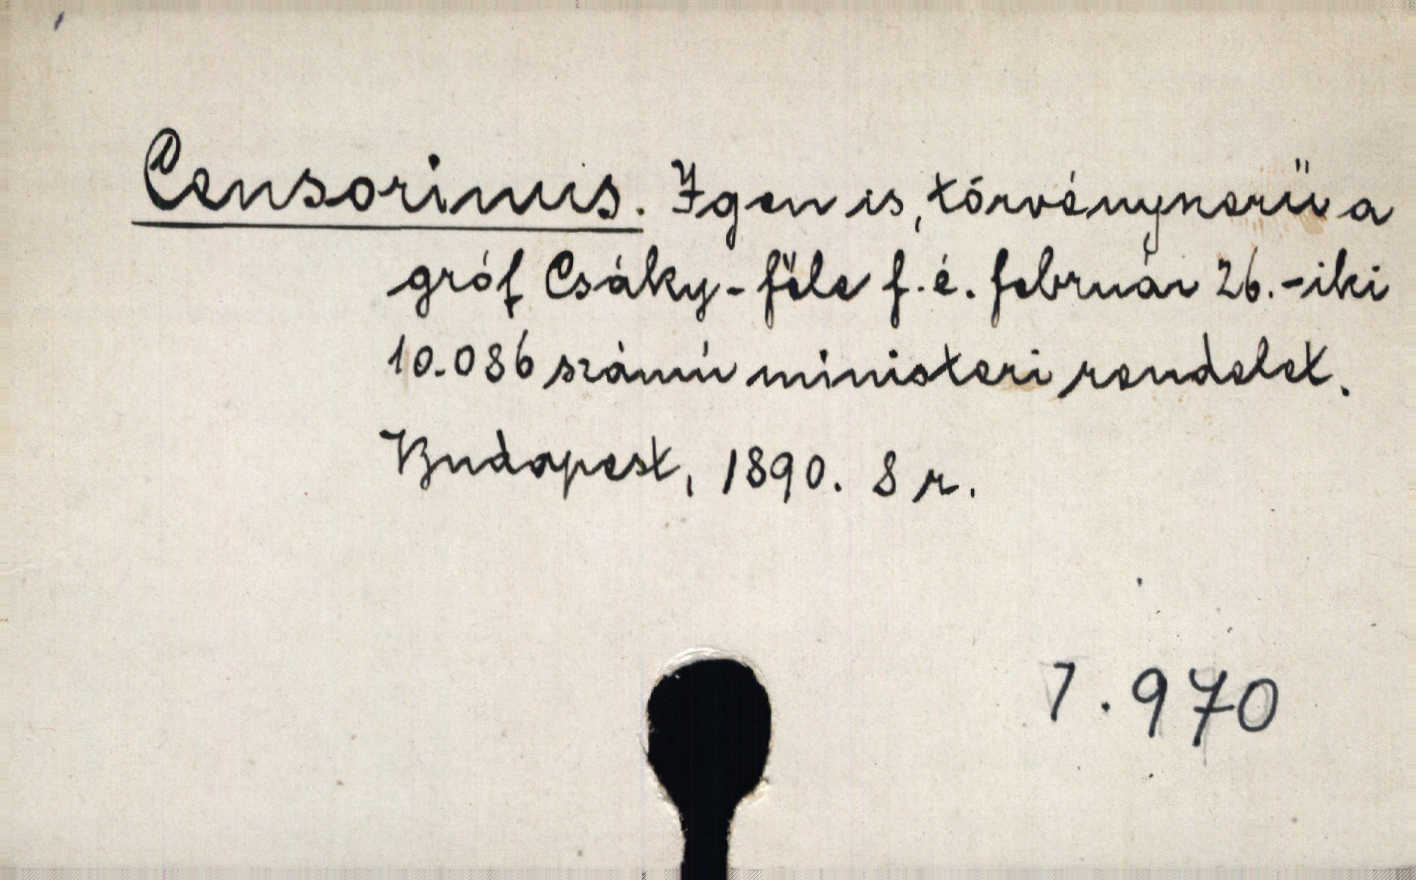 Censorinus. Igen is, törvényszerü a
gróf Csáky-féle f. é. február 26.-iki
10.086 számú ministeri rendelet.
Budapest, 1890. 8 r.
7.970